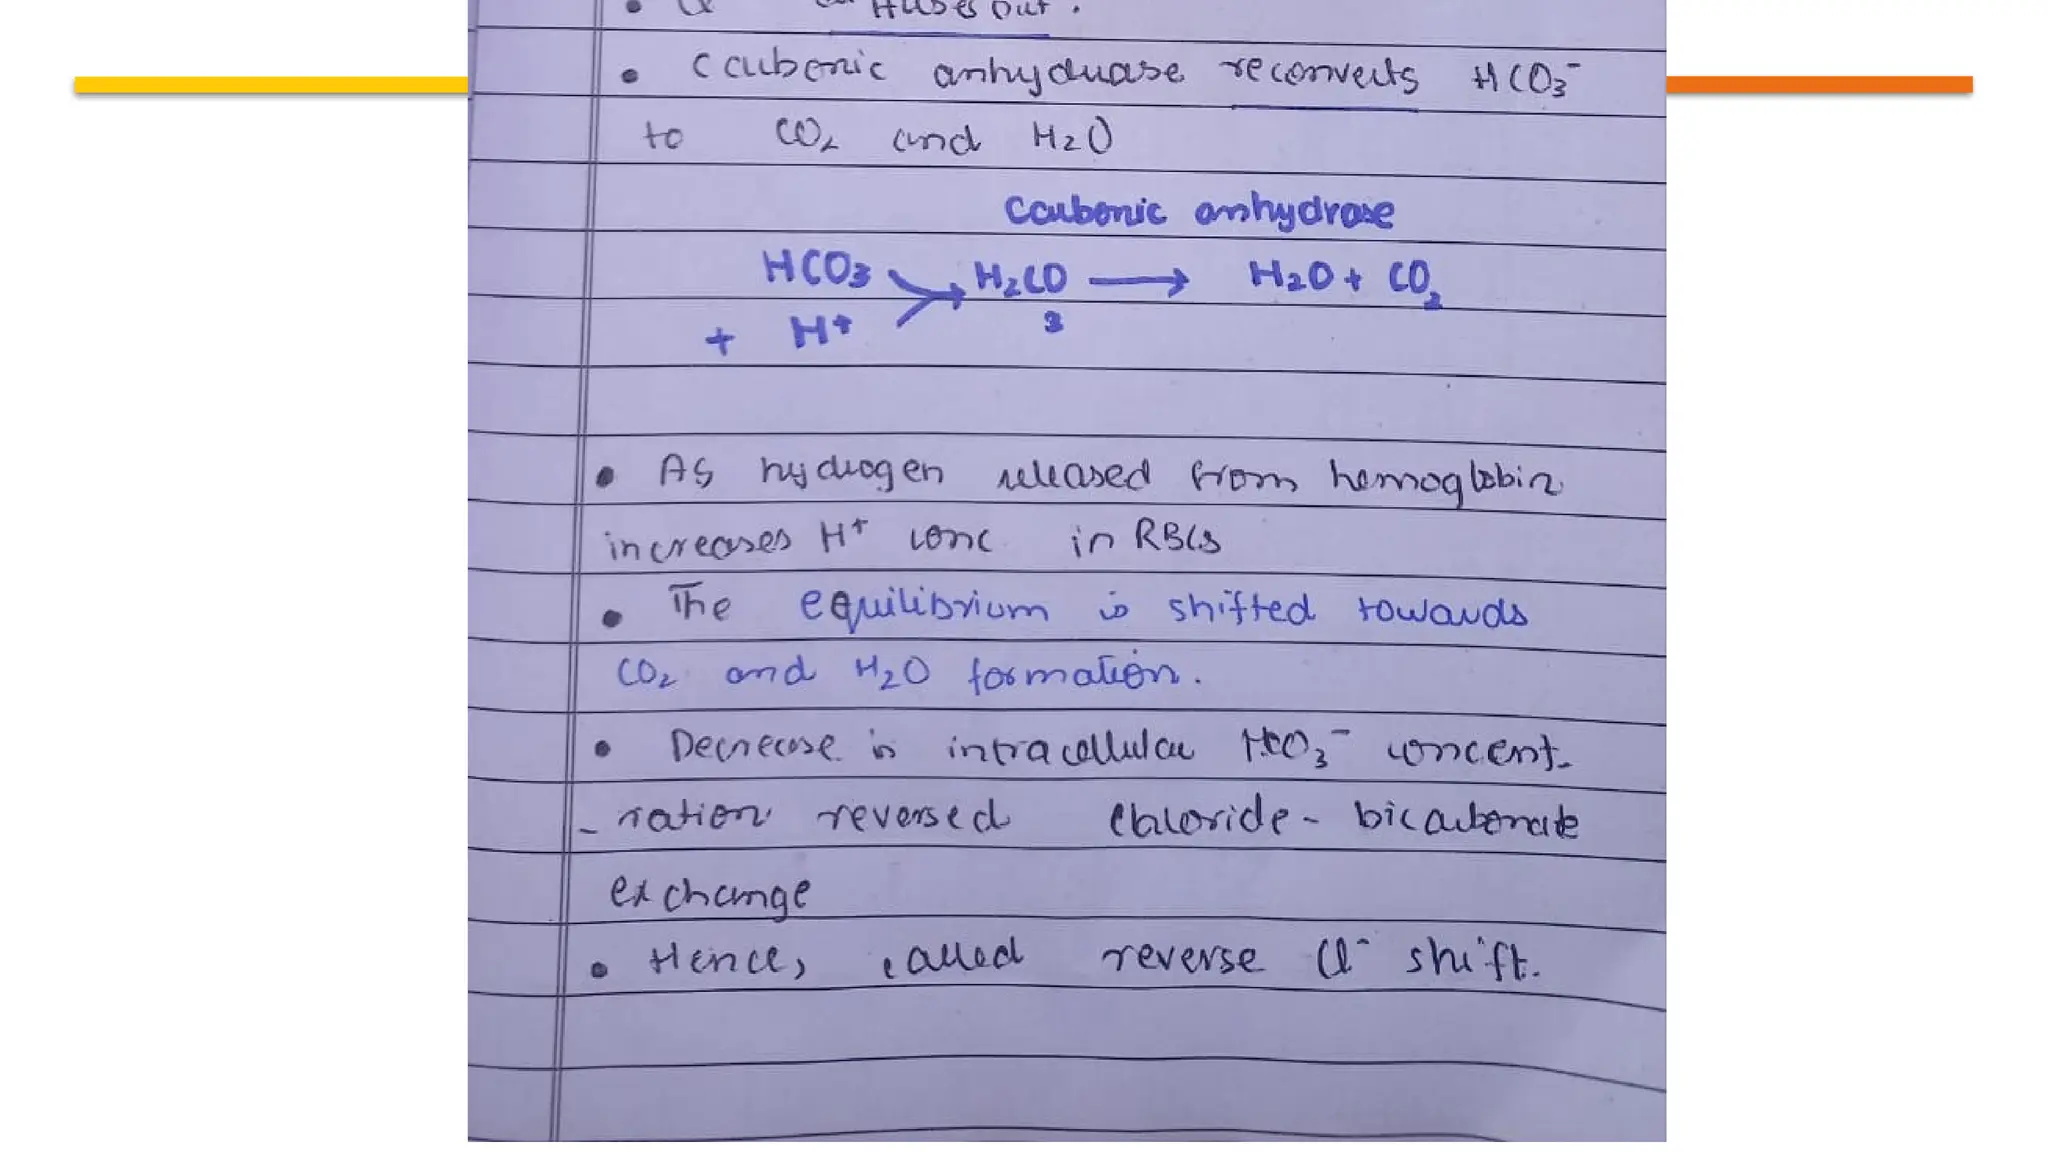 • Cl diffuses out.
• Carbonic anhydrase reconverts HCO3⁻
to CO2 and H2O
Carbonic anhydrase
HCO3 → H2CO3 → H2O + CO2
+ H⁺
• As hydrogen released from hemoglobin
increases H⁺ conc in RBCs
• The equilibrium is shifted towards
CO2 and H2O formation.
• Decrease in intracellular HCO3⁻ concent-
-ration reversed chloride - bicarbonate
exchange
• Hence, called reverse Cl⁻ shift.